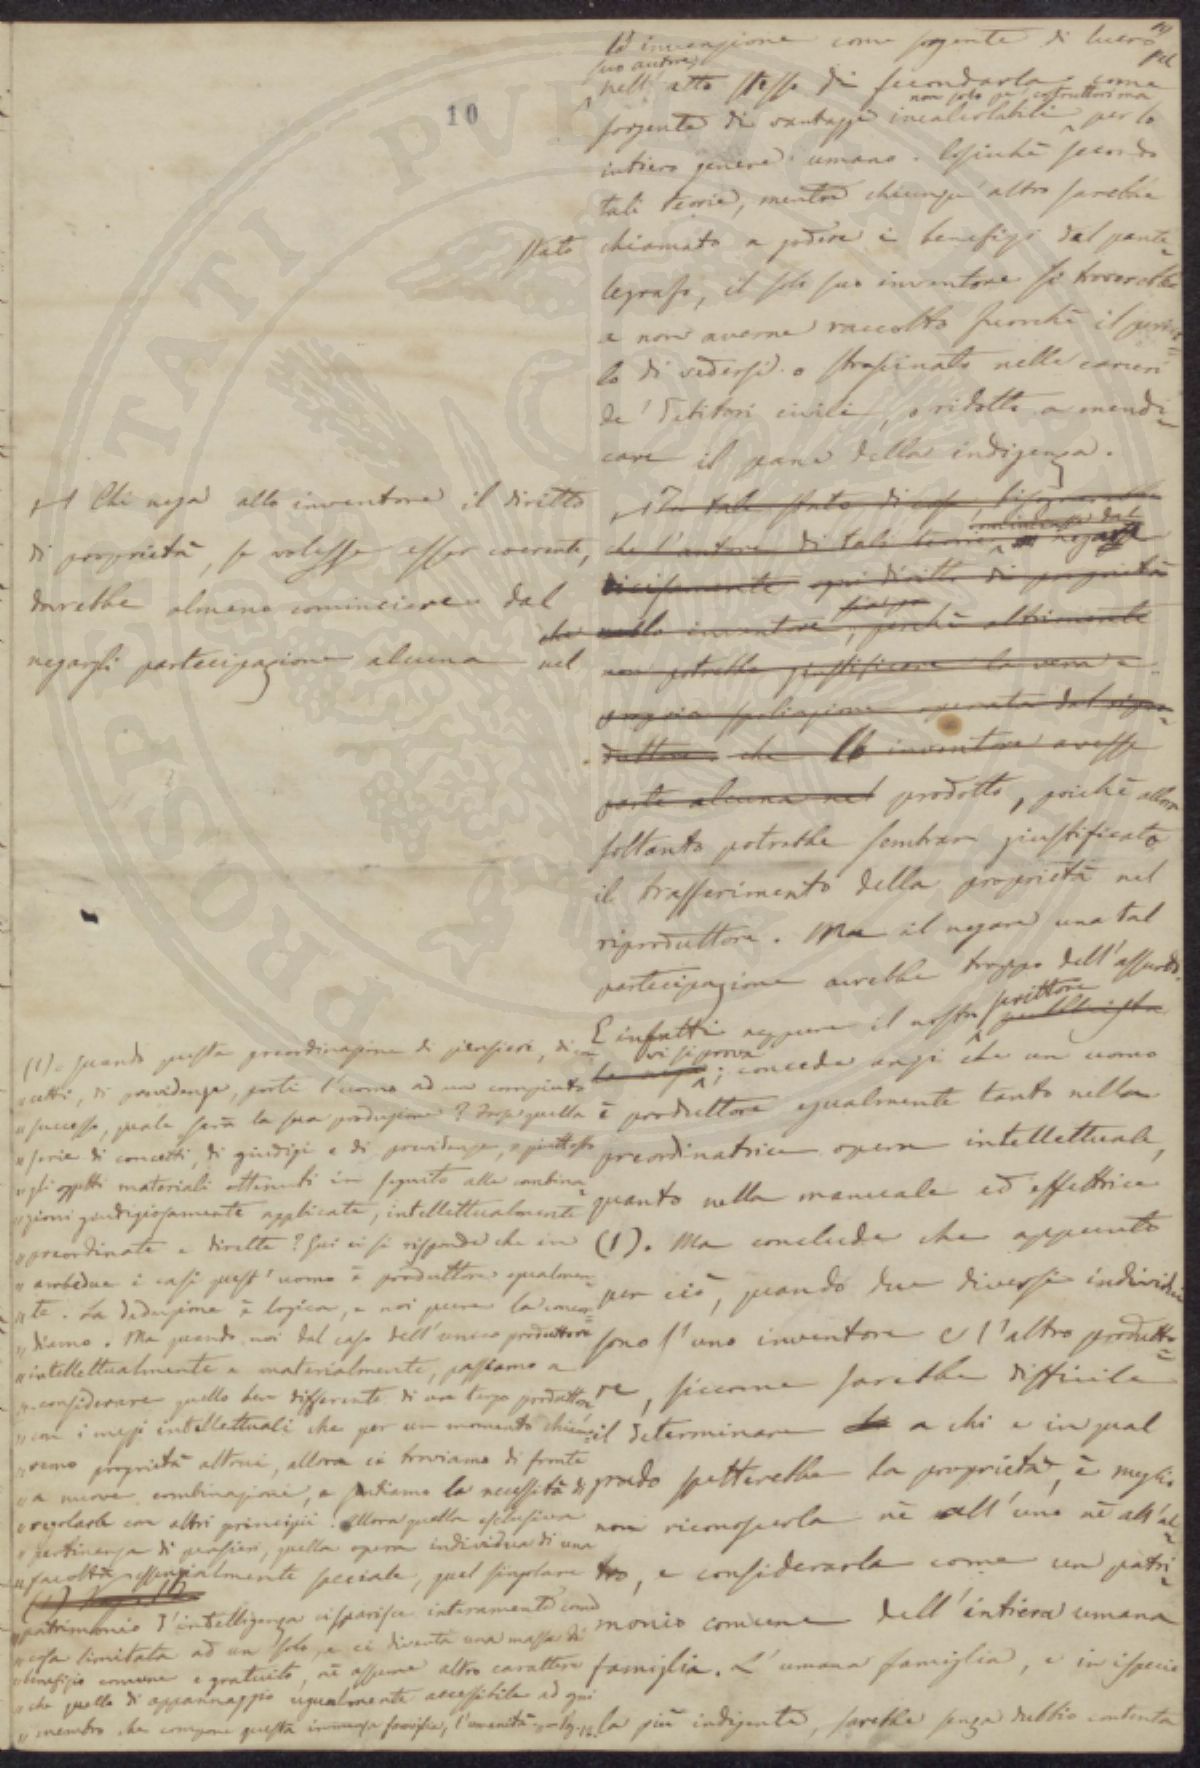 10
la invenzione come sorgente di lucro pel
suo autore,
nell' atto stesso di fecondarla come
non solo pe' costruttori ma
sorgente di vantaggi incalcolabili per lo
intiero genere umano. Cosicchè secondo
tali teorie, mentre chiunqu' altro sarebbe
stato chiamato a godere i benefizi del pante
legrafo, il solo suo inventore si troverebbe
a non averne raccolto fuorchè il perico
lo di vedersi o strascinato nelle carceri
de' debitori civili, o ridotto a mendi
care il pane della indigenza.
Chi nega allo inventore il diritto
di proprietà, se volesse esser coerente,
dovrebbe almeno cominciare dal
negargli partecipazione alcuna nel
In tale stato di cose bisognerebbe
che l'autore di tali teorie negasse
cominciasse dal
decisamente ogni diritto di proprietà
nello inventore, perchè altrimenti
non potrebbe giustificare la vera e
propria spoliazione operata dal ripro
duttore. che lo inventore avesse
parte alcuna nel prodotto, poichè allora
soltanto potrebbe sembrar giustificato
il trasferimento della proprietà nel
riproduttore. Ma il negare una tal
partecipazione avrebbe troppo dell'assurdo.
E infatti neppure il nostro scrittore
pubblicista
vi si prova; concede anzi che un uomo
è produttore egualmente tanto nella
preordinatrice opera intellettuale,
quanto nella manuale ed effettrice
(1). Ma conclude che appunto
per ciò, quando due diversi individui
sono l'uno inventore e l'altro produtto
re, siccome sarebbe difficile
il determinare a chi e in qual
grado spetterebbe la proprietà, è meglio
non riconoscerla nè all'uno nè all'al
tro, e considerarla come un patri
monio comune dell'intiera umana
famiglia. L'umana famiglia, e in ispecie
la più indigente, sarebbe senza dubbio contenta
(1) Quando questa preordinazione di pensieri, di con
"cetti, di previdenze, porti l'uomo ad un compiuto
"successo, quale sarà la sua produzione? Forse quella
"serie di concetti, di giudizi e di previdenze, o piuttosto
"gli oggetti materiali ottenuti in seguito alle combina
"zioni giudiziosamente applicate, intellettualmente
"preordinate e dirette? Qui ci si risponde che in
"ambedue i casi quest' uomo è produttore egualmen
"te. La deduzione è logica, e noi pure la conce
"diamo. Ma quando noi dal caso dell'unico produttore
"intellettualmente e materialmente, passiamo a
"considerare quello ben differente di un terzo produttore
"con i mezzi intellettuali che per un momento chiame
"remo proprietà altrui, allora ci troviamo di fronte
"a nuove combinazioni, e sentiamo la necessità di
"regolarle con altri principii. Allora quella esclusiva
"pertinenza di pensieri, quella opera individua di una
"facoltà essenzialmente speciale, quel singolare
"patrimonio d'intelligenza sparisce interamente come
"cosa limitata ad un solo, e ci diventa una massa di
"benefizio comune e gratuito, nè assume altro carattere
"che quello di appannaggio ugualmente accessibile ad ogni
"membro che compone questa immensa famiglia, l'umanità